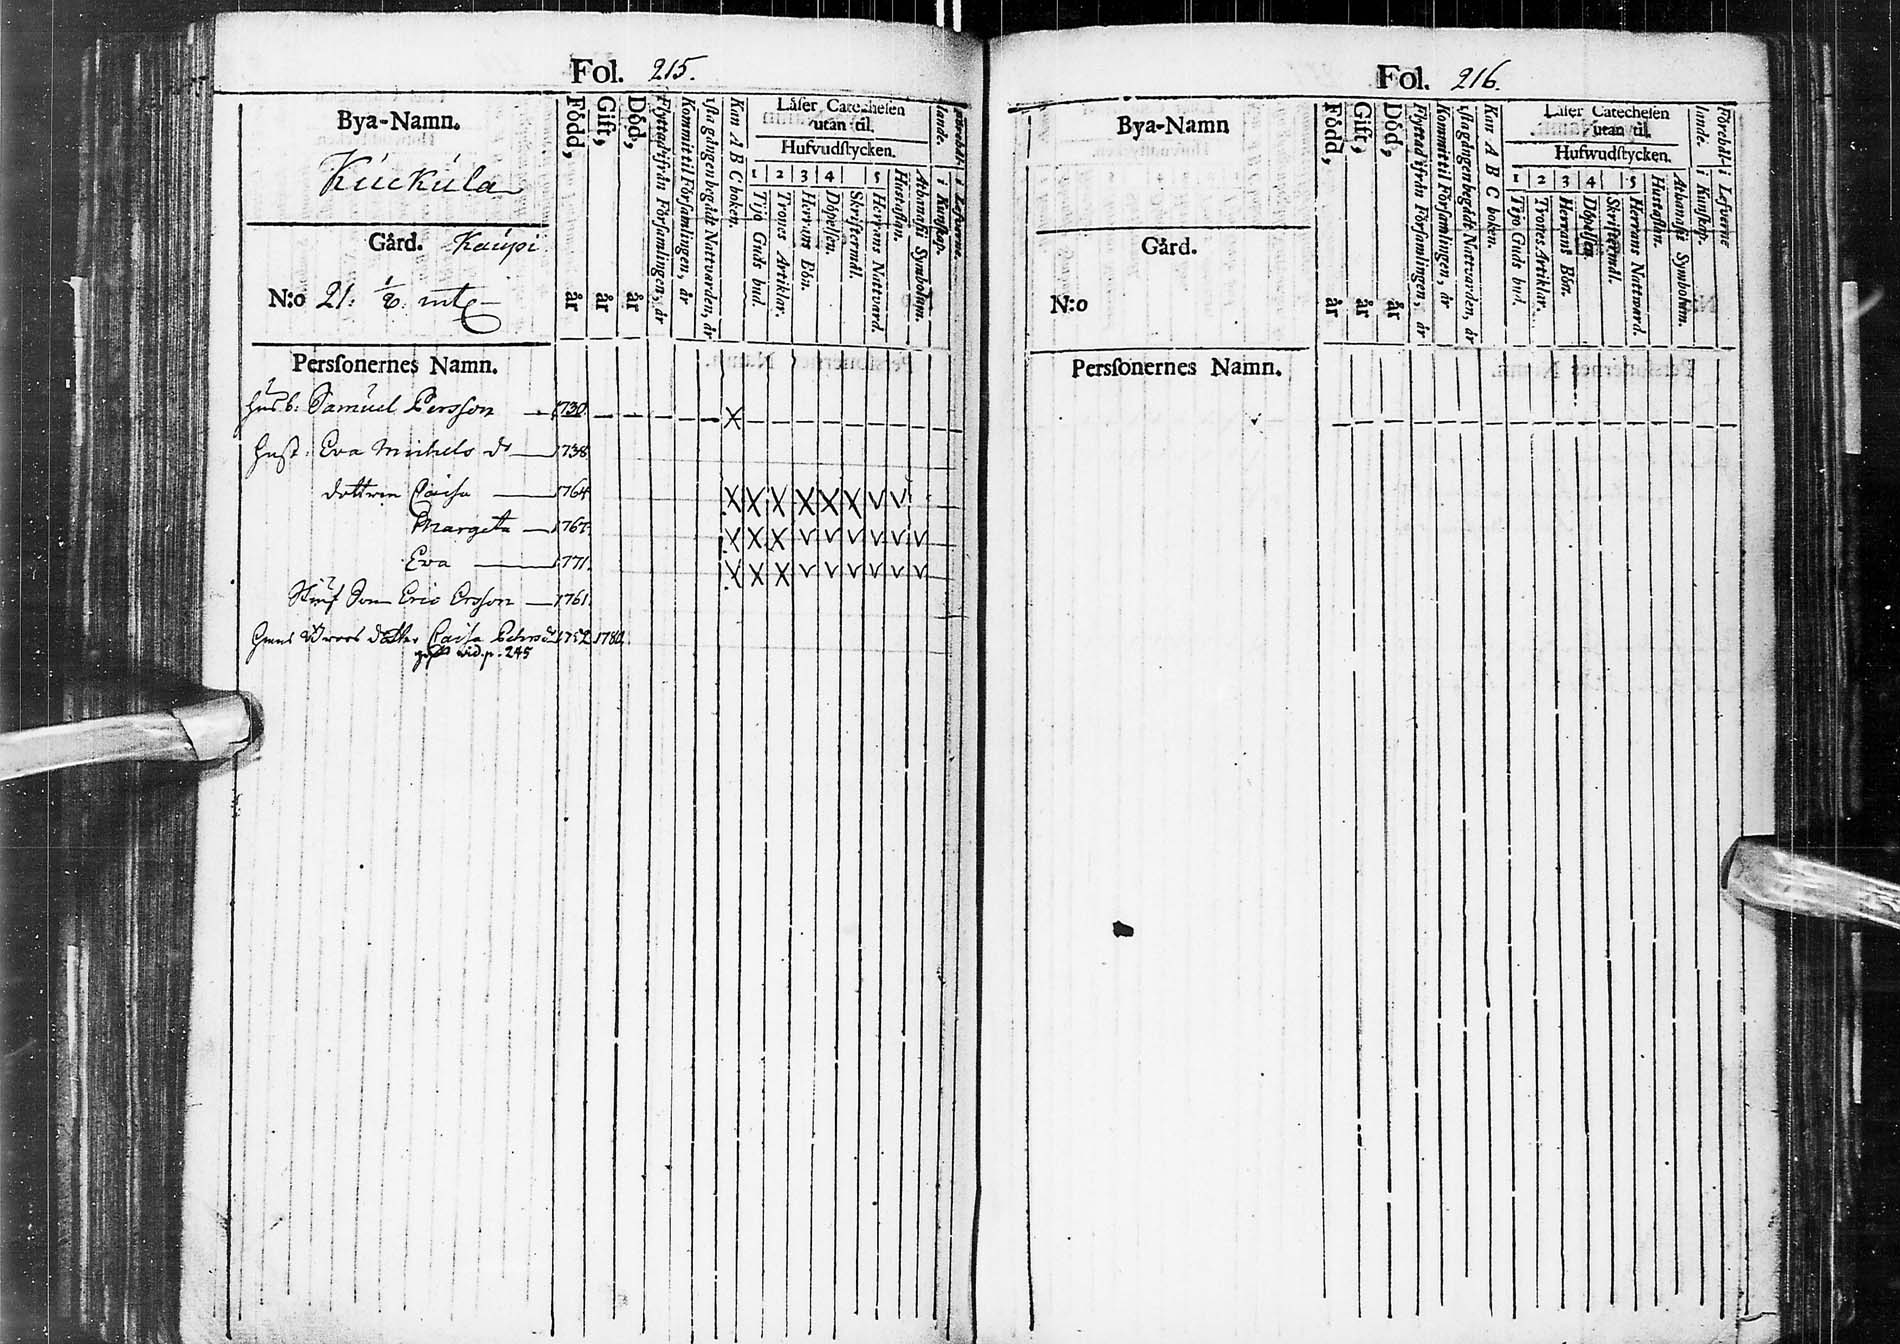 Fol. 215.
Bya-Namn.
Kuckula
Gård. Kaupi
N:o 21. 1/8. mtl
Född, år
Gift, år
Död, år
Flyttad ifrån Församlingen, år
Kommit til Församlingen, år
1sta gången begådt Nattvarden, år
Kan A B C boken.
Läser Catechesen
utan til.
Hufvudstycken.
1 2 3 4 5
Tijo Guds bud.
Trones Artiklar.
Herrans Bön.
Döpelsen.
Skriftermål.
Herrans Nattvard.
Hustaflan.
Athanasii Symbolum.
i Kunskap.
i Lefverne.
Persfonernes Namn.
husb: Samuel Persson 1730.
hust: Eva Michels dr 1738
dottren Caisa 1764
Margeta 1767.
Eva 1771.
Son Eric Ersson 1761.
dotter Caisa 1752 1780.
vid. p. 245
Fol. 216.
Bya-Namn
Gård.
N:o
Född, år
Gift, år
Död, år
Flyttad ifrån Församlingen, år
Kommit til Församlingen, år
1sta gången begådt Nattvarden, år
Kan A B C boken.
Läser Catechesen
utan til.
Hufwudstycken.
1 2 3 4 5
Tijo Guds bud.
Trones Artiklar.
Herrans Bön.
Döpelsen.
Skriftermål.
Herrans Nattvard.
Hustaflan.
Athanasii Symbolum.
i Kunskap.
i Lefverne
Persfonernes Namn.